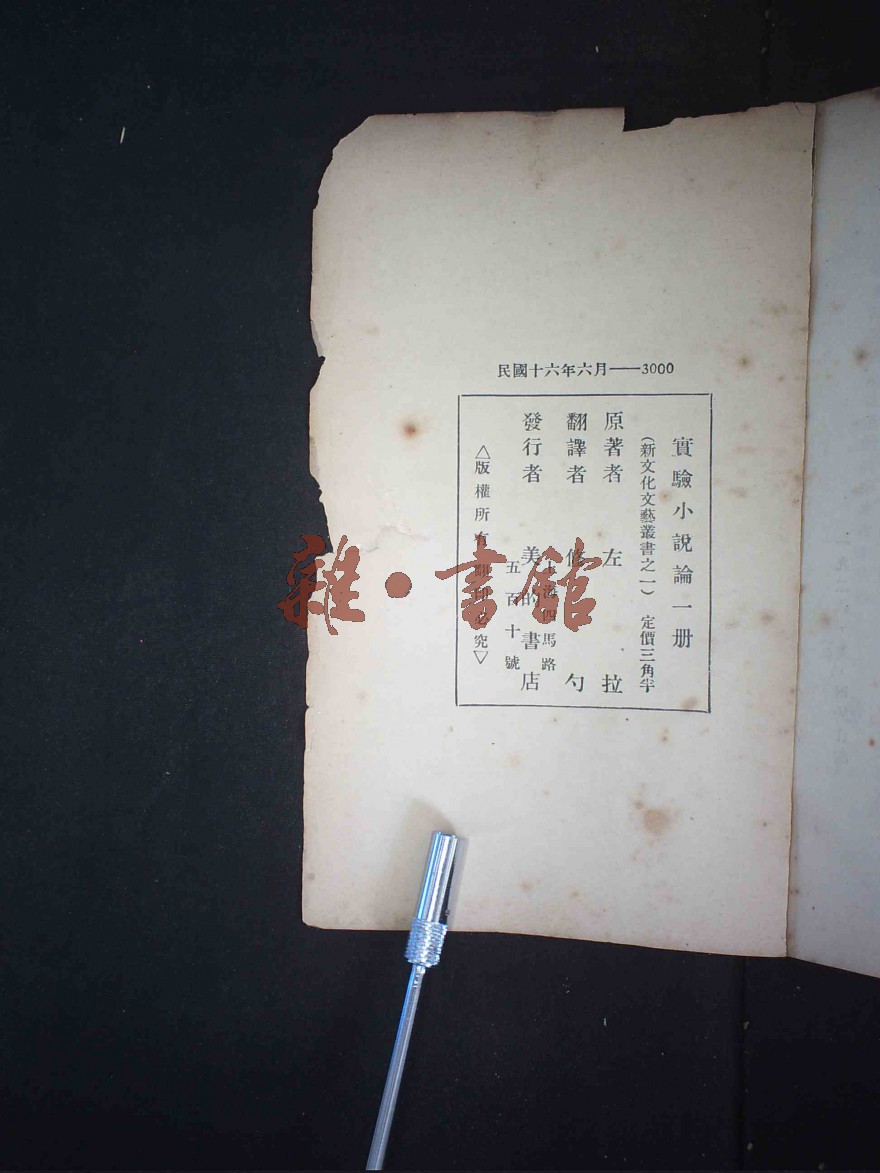 民國十六年六月——3000
實驗小說論一册
(新文化文藝叢書之一) 定價三角半
原著者 左拉
翻譯者 修勺
發行者 美的書店
上海四馬路
五百十號
△版權所有翻印必究▽
雜·書館